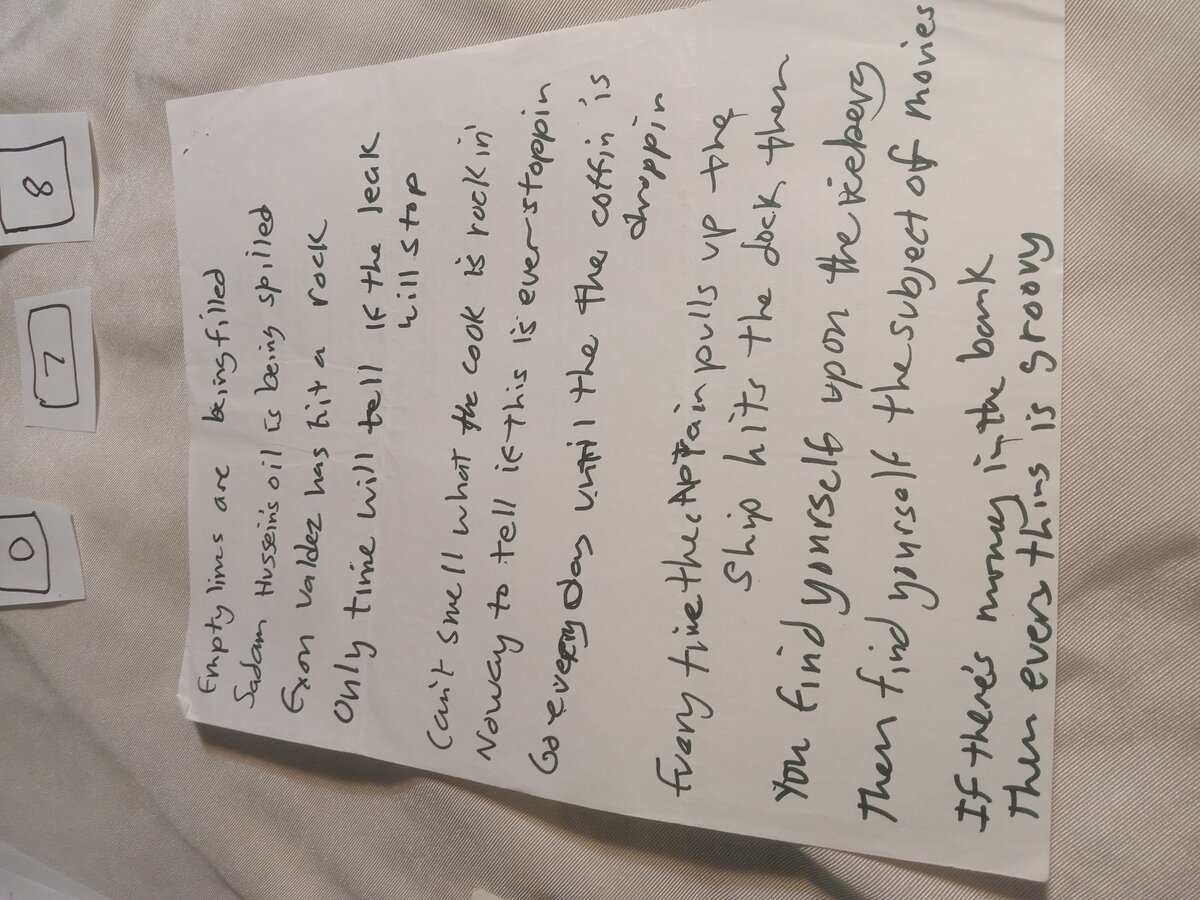 Empty lines are being filled
Sadam Hussein's oil is being spilled
Exon valdez has hit a rock
Only time will tell if the leak
will stop
Can't smell what the cook is rockin'
Noway to tell if this is ever stoppin
Go every day until the the coffin is
droppin
Every time the cAptain pulls up the
Ship hits the dock then
You find yourself upon the iceberg
Then find yourself the subject of movies
If there's money in the bank
Then every thing is groovy
0
7
8